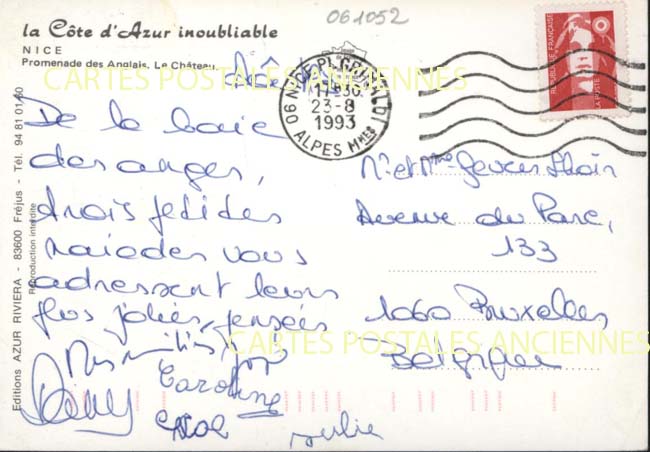 la Côte d'Azur inoubliable
NICE
Promenade des Anglais, Le Château.
061052
CARTES POSTALES ANCIENNES
06 NICE PL. GRIMALDI
17H30
23-8
1993
ALPES Mmes
REPUBLIQUE FRANÇAISE
LA POSTE
De la baie
des anges,
trois petites
naiades vous
adressent leurs
plus jolies pensées
Caroline
Julie
Mr et Mme
Avenue du Parc,
133
1060 Bruxelles
Belgique
CARTES POSTALES ANCIENNES
Editions AZUR RIVIERA - 83600 Fréjus - Tél. 94 81 01 60
Reproduction interdite